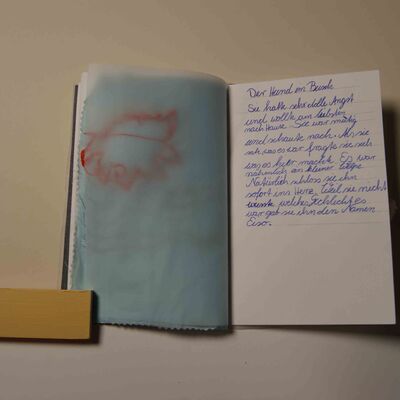 Der Hund im Busch
Sie hatte sehr dolle Angst
und wollte am liebsten
nach Hause. Sie war mutig
und schaute nach. Als sie
sah, was es war fragte sie sich
was es hier macht. Es war
nähmlich ein kleiner Welpe
Natürlich schloss sie ihn
sofort ins Herz. Weil sie nicht
wusste welches Geschlecht es
war gab sie ihn den Namen